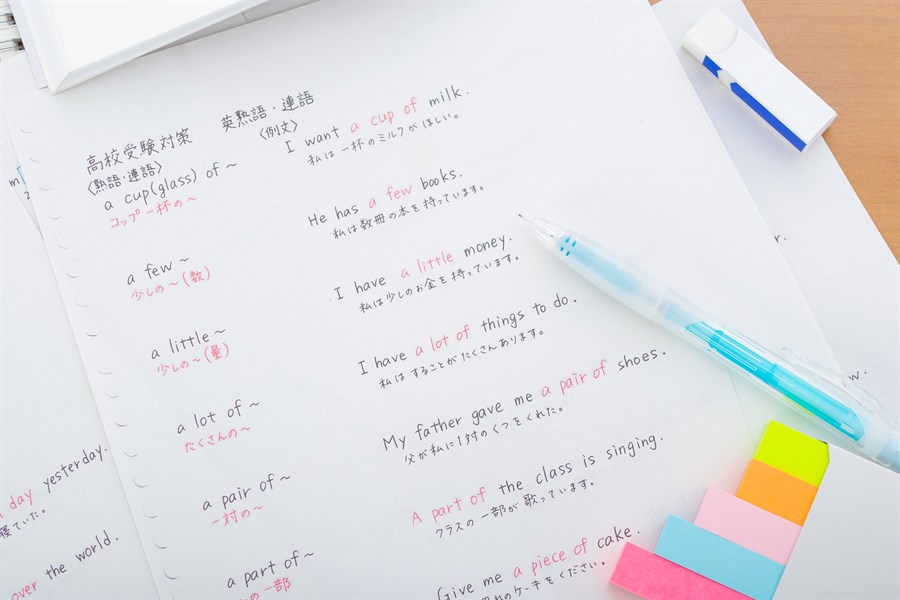 高校受験対策 英熟語・連語
〈熟語・連語〉 〈例文〉
a cup(glass) of ~ I want a cup of milk.
コップ一杯の~ 私は一杯のミルクがほしい。
a few ~ He has a few books.
少しの~(数) 私は数冊の本を持っています。
a little ~ I have a little money.
少しの~(量) 私は少しのお金を持っています。
a lot of ~ I have a lot of things to do.
たくさんの~ 私はすることがたくさんあります。
a pair of ~ My father gave me a pair of shoes.
一対の~ 父が私に1対のくつをくれた。
a part of ~ A part of the class is singing.
の一部 クラスの一部が歌っています。
Give me a piece of cake.
れのケーキをください。
day yesterday.
寝ていた。
over the world.